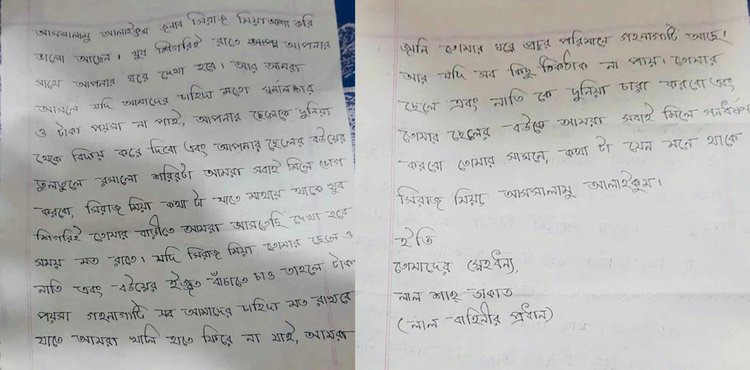 আসসালামু আলাইকুম জনাব সিরাজ মিয়া আশা করি
ভালো আছেন। খুব শিগগিরই রাতে আপনার
সাথে আপনার ঘরে দেখা হবে। আর আমরা
আসলে যদি আমাদের চাহিদা মতো
ও টাকা পয়সা না পাই, আপনার ছেলেকে দুনিয়া
থেকে বিদায় করে দিবো এবং আপনার ছেলের বউয়ের
তুলতুলে রসালো শরিরটা আমরা সবাই মিলে ভোগ
করবো, সিরাজ মিয়া কথা টা যাতে মাথায় থাকে খুব
শিগরিই তোমার বাড়ীতে আমরা আসতেছি দেখা হবে
সময় মত রাতে। যদি সিরাজ মিয়া তোমার ছেলে ও
নাতি এবং বউয়ের ইজ্জত বাঁচাতে চাও তাহলে টাকা
পয়সা গহনাগাটি সব আমাদের চাহিদা মত রাখবে
যাতে আমরা খালি হাতে ফিরে না যাই, আমরা
জানি তোমার ঘরে প্রচুর পরিমানে গহনাগাটি আছে।
আর যদি সব কিছু ঠিকঠাক না পায়। তোমার
ছেলে এবং নাতি কে দুনিয়া ছাড়া করবো এবং
তোমার ছেলের বউকে আমরা সবাই মিলে গনধর্ষণ
করবো তোমার সামনে, কথা টা যেন মনে থাকে
সিরাজ মিয়া, আসসালামু আলাইকুম।
ইতি
তোমাদের স্নেহধন্য,
লাল শাহ্ ডাকাত
(লাল বাহিনীর প্রধান)